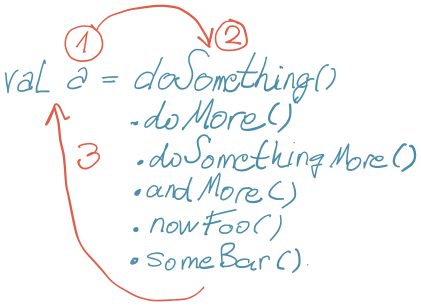 1 2
val a = doSomething()
.doMore()
3 .doSomethingMore()
.andMore()
.nowFoo()
.someBar().